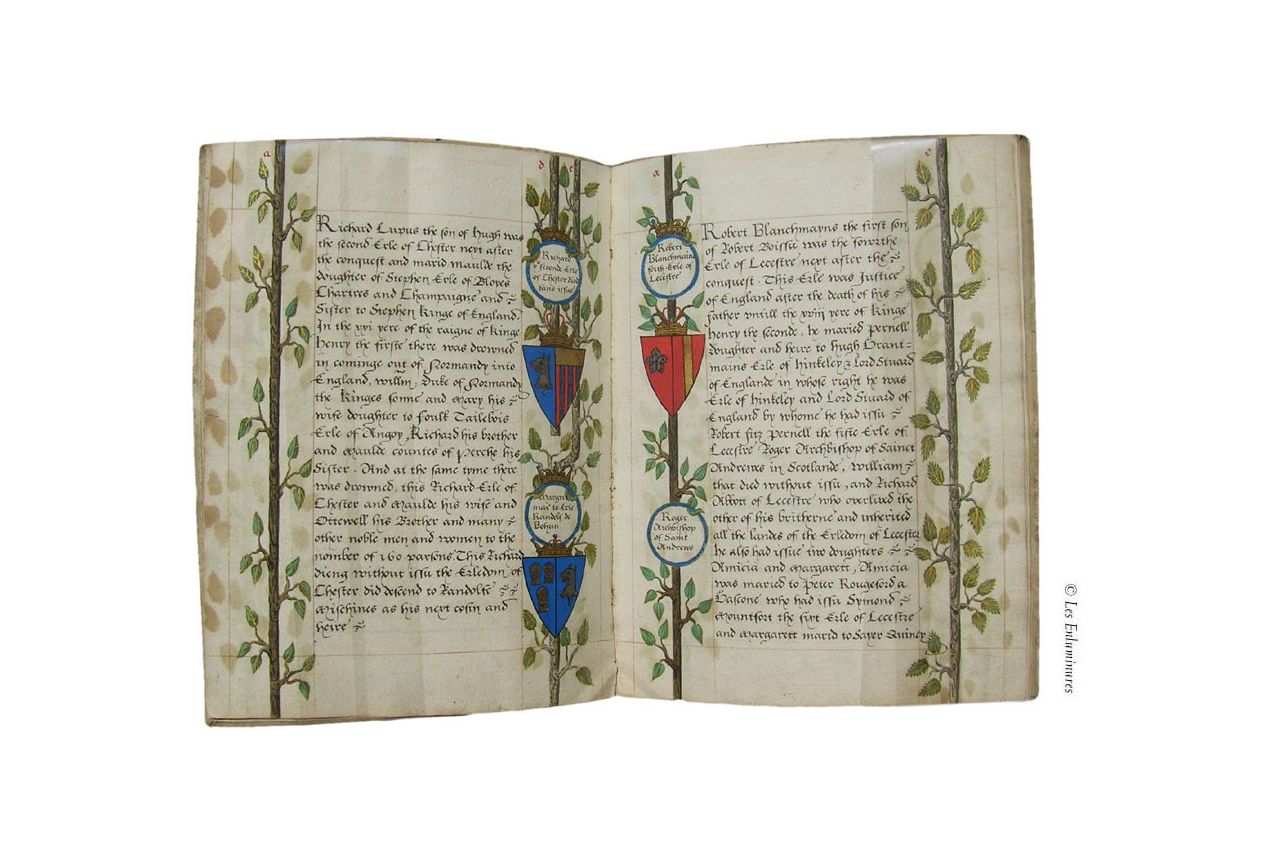 a
Richard Lupus the son of Hugh was
the second Erle of Chester next after
the conquest and marid maulde the
doughter of Stephen Erle of Bloyes
Chartres and Champaigne and
Sister to Stephen Kinge of England.
In the xxi yere of the raigne of Kinge
Henry the firste there was drowned
in cominge out of Normandy into
England, willm Duke of Normandy
the Kinges sonne and Mary his
wife doughter to Foulk Tailebois
Erle of Angoy, Richard his brother
and Maulde countes of Perche his
Sister. And at the same tyme there
was drowned, this Richard Erle of
Chester and Maulde his wife and
Ottewell his Brother and many
other noble men and women to the
nomber of 160 parsons. This Richard
dieng without issu the Erledom of
Chester did descend to Randolfe
Mischines as his next cosin and
heire
d e
Richard
seconde Erle
of Chester died
sans issue
Margret
mar to Erle
Randolf de
Bohun
a
Robert
Blanchmains
forth Erle of
Lecestre
Roger
Archbishop
of Saint
Andrews
e
Robert Blanchmayns the first son
of Robert Bossu was the fowrthe
Erle of Lecestre next after the
conquest. This Erle was Justice
of England after the death of his
father untill the xviij yere of Kinge
Henry the seconde, he maried Pernell
doughter and heire to Hugh Grant=
mains Erle of hinkeley & Lord Stuard
of Englande in whose right he was
Erle of hinkeley and Lord Stuard of
England by whome he had issu
Robert fitz Pernell the fifte Erle of
Lecestre Roger Archbishop of Sainct
Andrewes in Scotlande, William
that died without issu, and Richard
Abbott of Lecestre who overlived the
other of his bretherne and inherited
all the landes of the Erledom of Lecestre
he also had issue two doughters
Amicia and Margarett, Amicia
was maried to Peter Rougeford a
Gascone who had issu Symond
Mountfort the sixt Erle of Lecestre
and Margarett marid to Sayer Quincy
© Les Enluminures